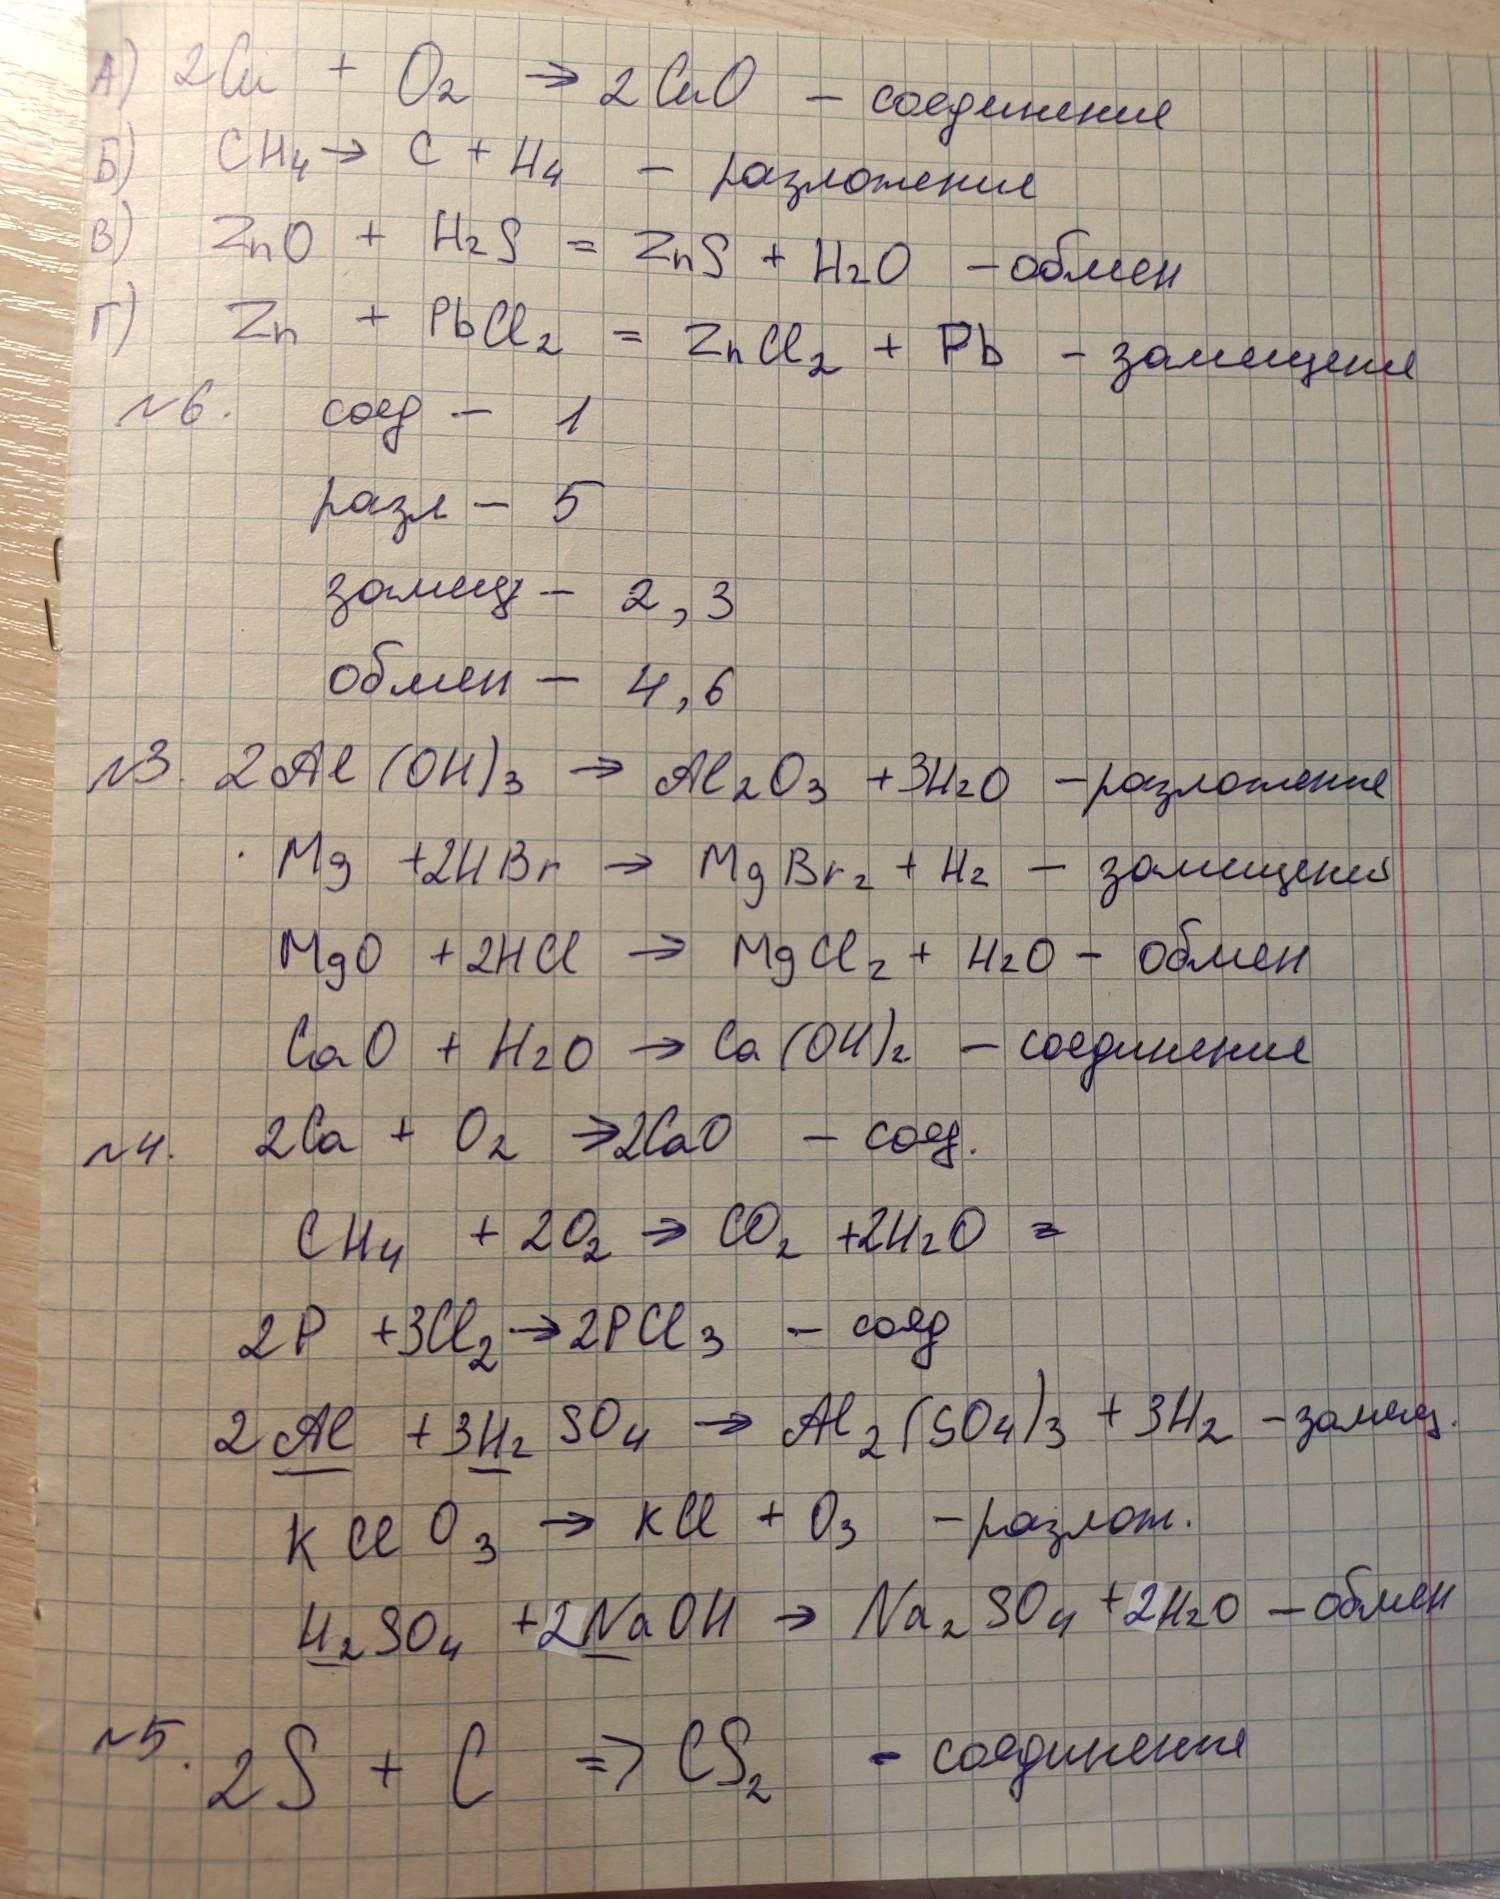 А) 2Cu + O2 → 2CuO – соединение
Б) CH4 → C + H4 – разложение
В) ZnO + H2S = ZnS + H2O – обмен
Г) Zn + PbCl2 = ZnCl2 + Pb – замещение
№6. соед – 1
разл – 5
замещ – 2, 3
обмен – 4, 6
№3. 2Al(OH)3 → Al2O3 + 3H2O – разложение
Mg + 2HBr → MgBr2 + H2 – замещений
MgO + 2HCl → MgCl2 + H2O – обмен
CaO + H2O → Ca(OH)2 – соединение
№4. 2Ca + O2 → 2CaO – соед.
CH4 + 2O2 → CO2 + 2H2O =
2P + 3Cl2 → 2PCl3 – соед
2Al + 3H2SO4 → Al2(SO4)3 + 3H2 – замещ.
KClO3 → KCl + O3 – разлож.
H2SO4 + 2NaOH → Na2SO4 + 2H2O – обмен
№5. 2S + C => CS2 – соединение